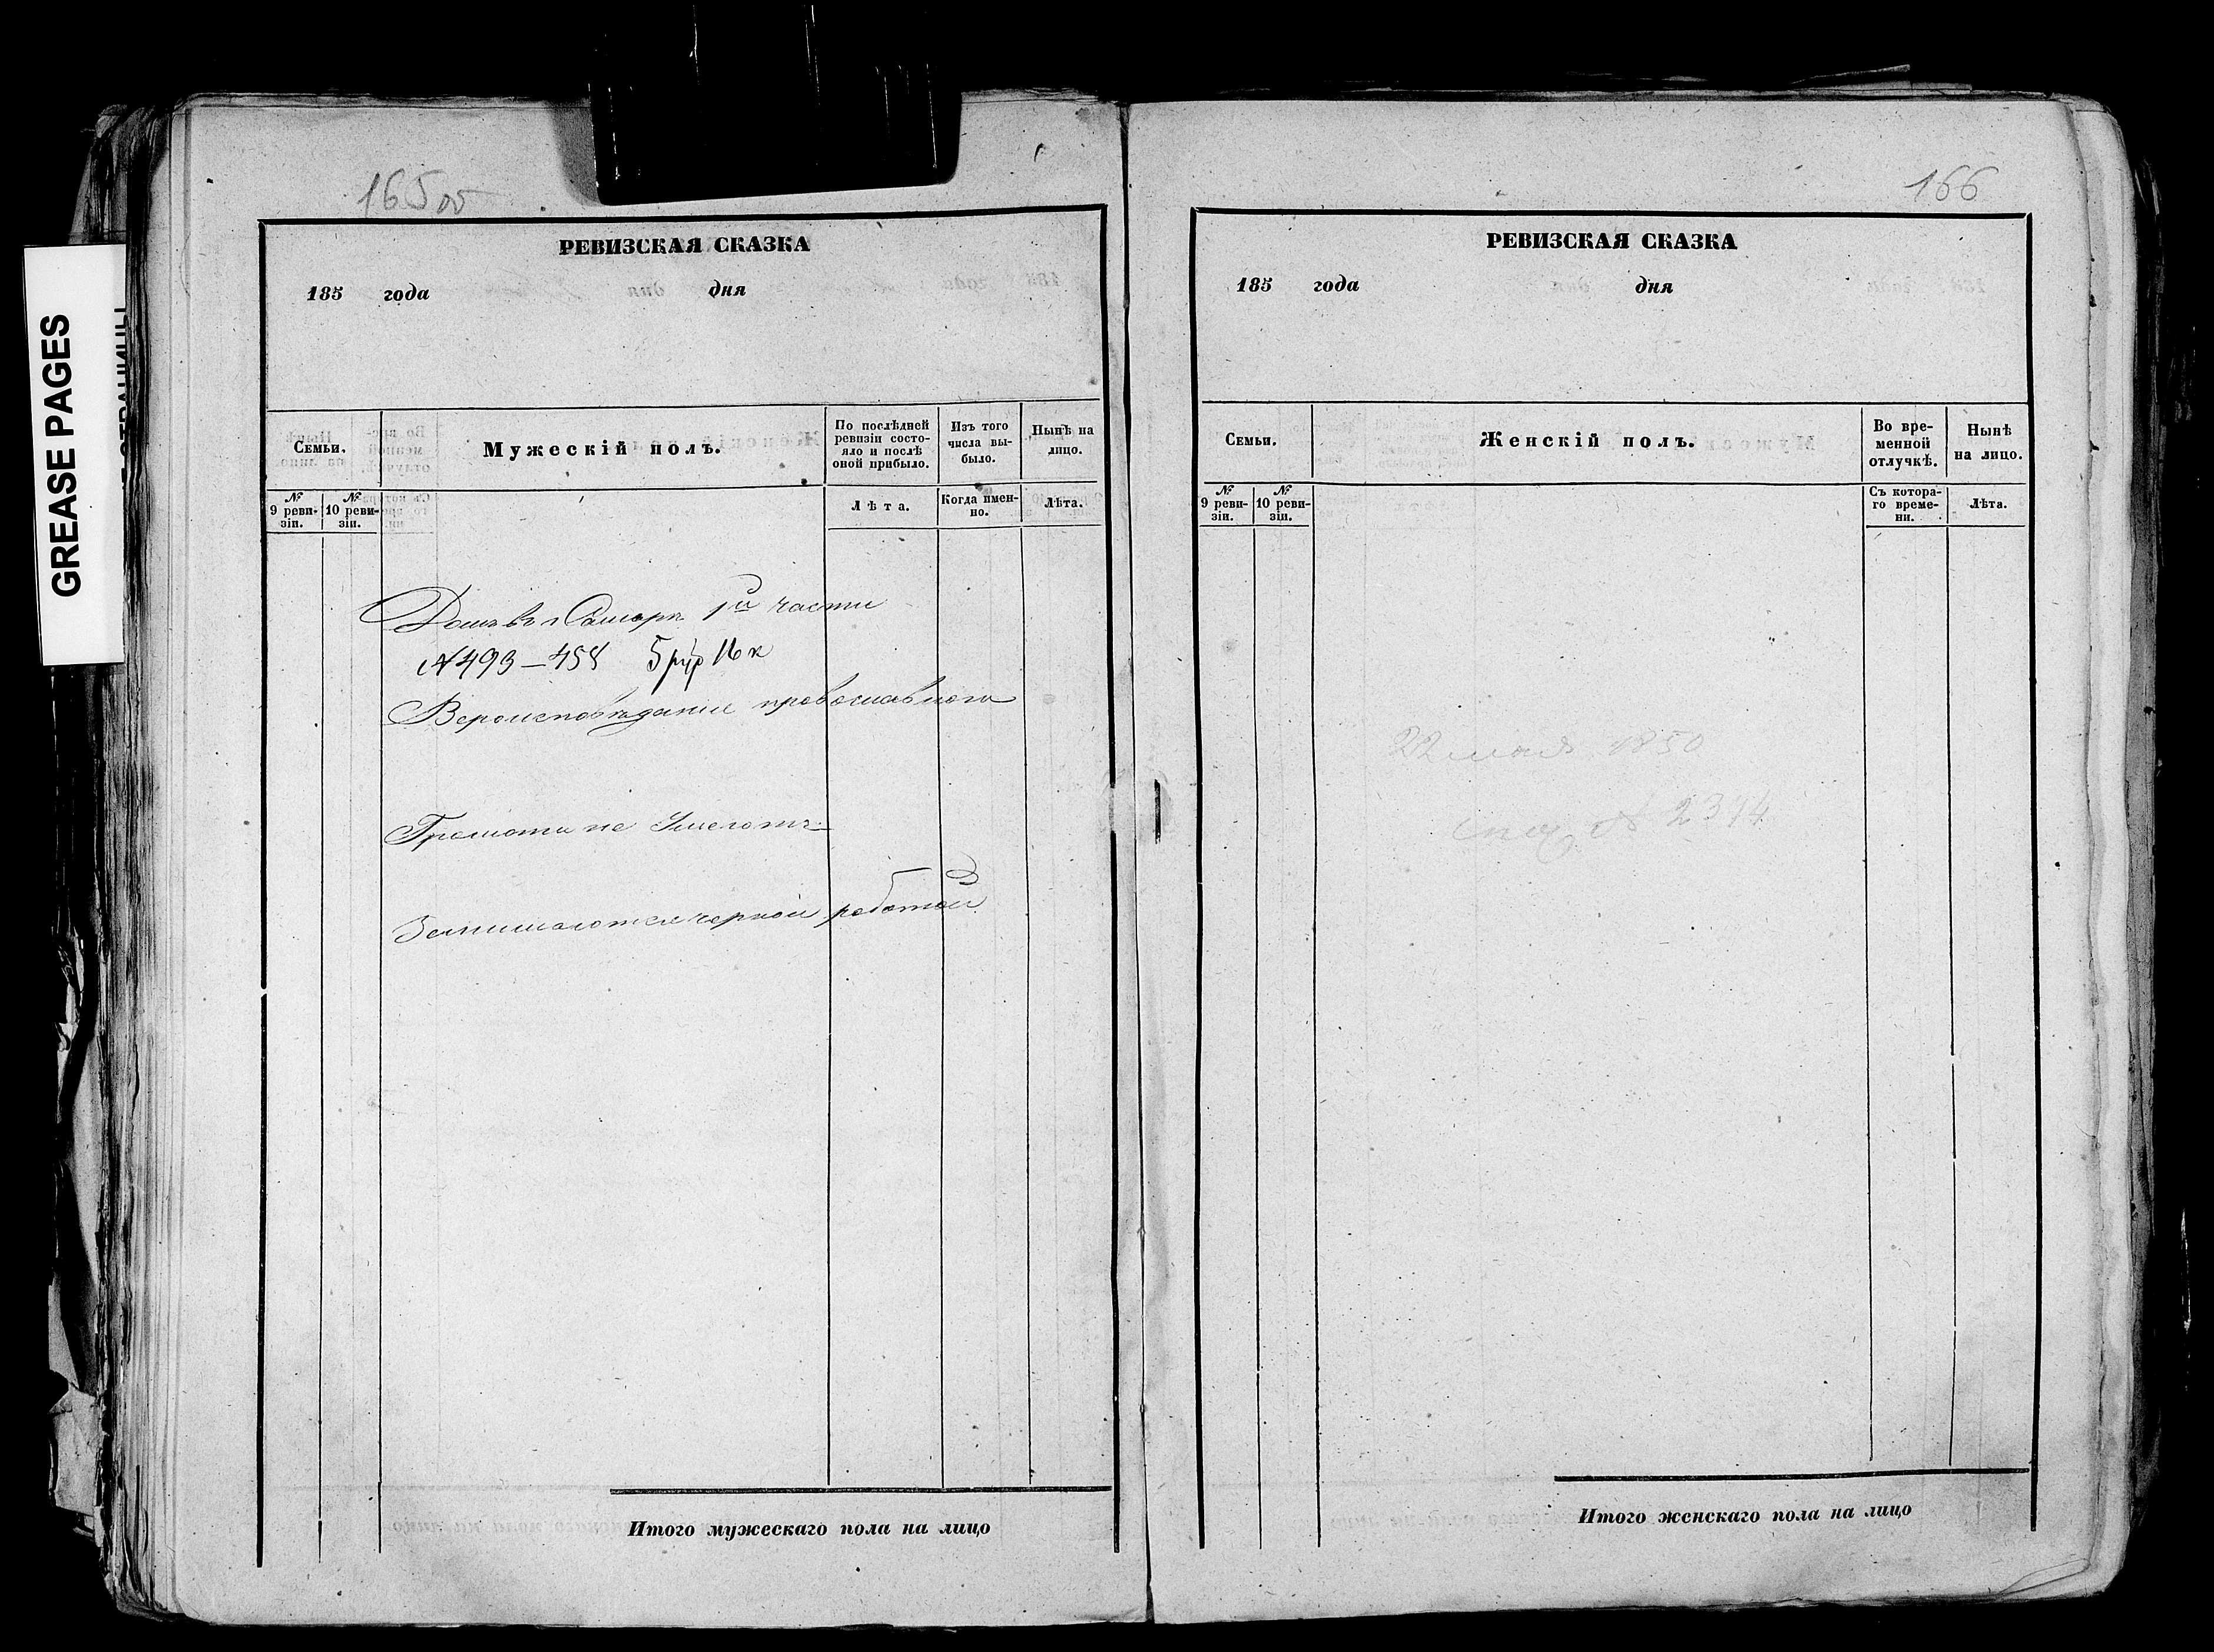 GREASE PAGES
165об
РЕВИЗСКАЯ СКАЗКА
185 года дня
Семьи.
Мужескій полъ.
По послѣдней ревизіи состояло и послѣ оной прибыло.
Изъ того числа выбыло.
Нынѣ на лицо.
№ 9 ревизіи.
№ 10 ревизіи.
Лѣта.
Когда именно.
Лѣта.
Домъ въ г Самарѣ 1й части
№ 493 – 458 5 руб 16 к
Вероисповѣдание провославного
Грамоты не Умеютъ
Занимаются черной работой
Итого мужескаго пола на лицо
166
РЕВИЗСКАЯ СКАЗКА
185 года дня
Семьи.
Женскій полъ.
Во временной отлучкѣ.
Нынѣ на лицо.
№ 9 ревизіи.
№ 10 ревизіи.
Съ котораго времени.
Лѣта.
22 мая 1850
№ 2344
Итого женскаго пола на лицо